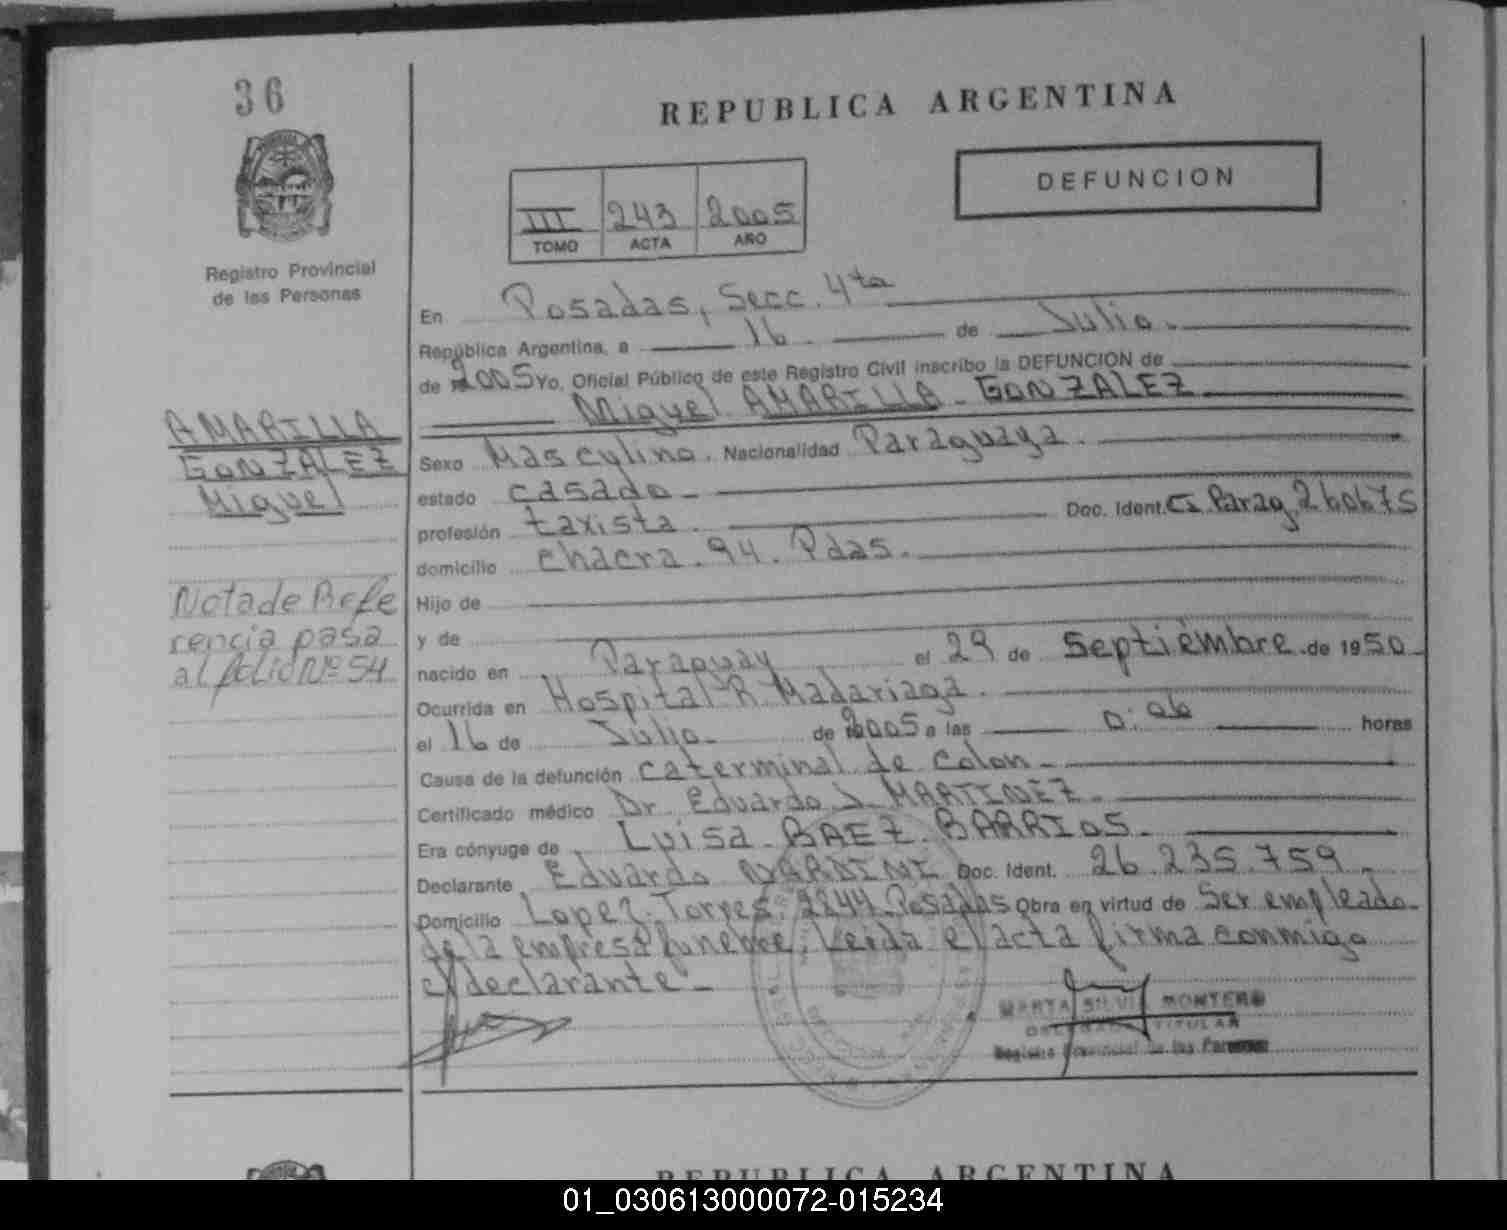 36
REPUBLICA ARGENTINA
DEFUNCION
III 243 2005
TOMO ACTA AÑO
Registro Provincial
de las Personas
En Posadas, Secc. 4ta
República Argentina, a 16 de Julio.
de 2005 Yo, Oficial Público de este Registro Civil inscribo la DEFUNCION de
Miguel AMARILLA GONZALEZ
AMARILLA
GONZALEZ
Miguel
Sexo Masculino. Nacionalidad Paraguaya.
estado casado
profesión taxista. Doc. Ident. C. I. Parag. 260675
domicilio chacra. 94. Pdas.
Nota de Refe
rencia pasa
al folio Nº 54
Hijo de
y de
nacido en Paraguay el 29 de Septiembre de 1950
Ocurrida en Hospital R. Madariaga.
el 16 de Julio. de 2005 a las 0:06 horas
Causa de la defunción ca terminal de colon
Certificado médico Dr. Eduardo J. MARTINEZ
Era cónyuge de Luisa BAEZ BARRIOS.
Declarante Eduardo NARDINI Doc. Ident. 26.235.759
Domicilio Lopez Torres 2844 Posadas Obra en virtud de Ser empleado
de la empresa funebre, Leida el acta firma conmigo
el declarante
MARTA SILVI MONTERO
TITULAR
Registro Provincial de las Personas
REPUBLICA ARGENTINA
01_030613000072-015234